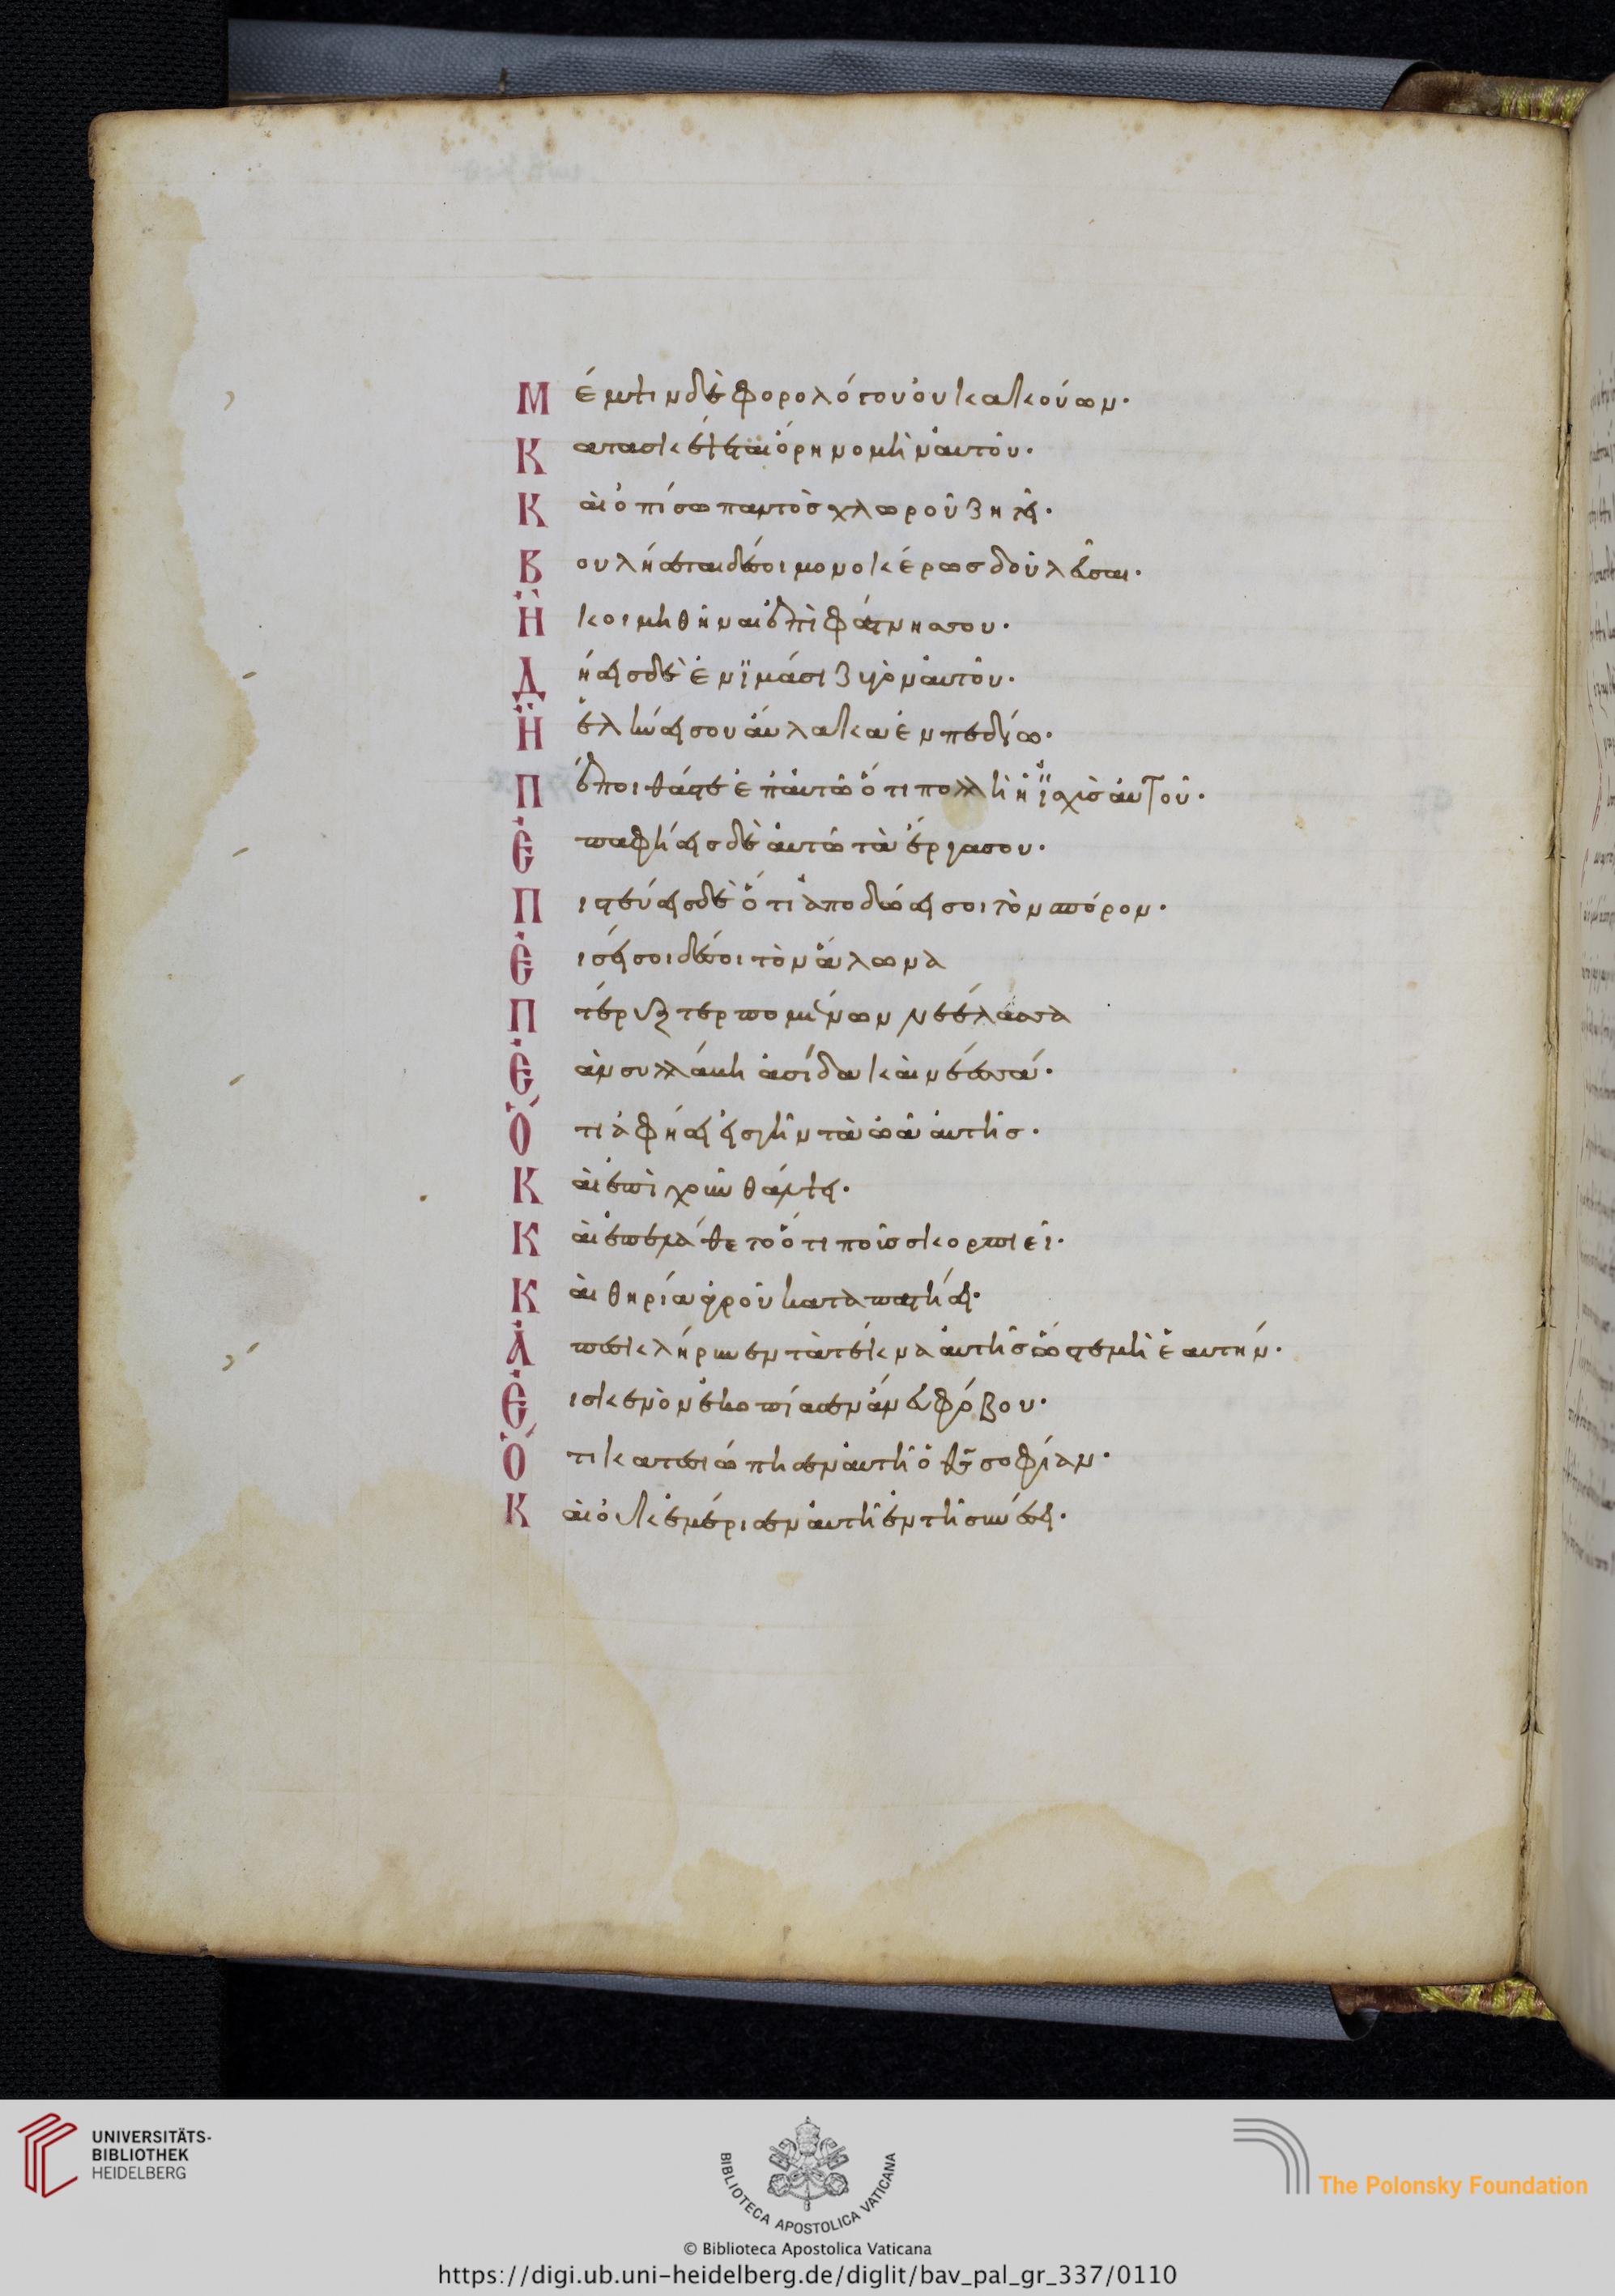 Μ έμψιν δὲ φορολόγου οὐκ ἀκούων·
Κ ατασκέψεται ὄρη νομὴν αὐτοῦ·
Κ αὶ ὀπίσω παντὸς χλωροῦ ζητεῖ·
Β ουλήσεται δέ σοι μονοκέρωσ δουλεῦσαι·
Ἢ κοιμηθῆναι ἐπὶ φάτνησ σου·
Δ ήσεισ δὲ ἐν ϊμάσι ζυγὸν αὐτοῦ·
Ἢ ἑλκύσει σου αὔλακα ἐν πεδίω·
Π έποιθάς δὲ ἐπ' αὐτῶ ὅτι πολλὴ ἡ ϊσχὺσ αὐτοῦ·
Ἐ παφήσεισ δὲ αὐτῶ τὰ ἔργα σου·
Π ιστεύσεισ δὲ ὅτι ἀποδώσει σοι τὸν σπόρον·
Ἐ ισοίσει δέ σοι τὸν ἅλωνα
Π τέρυξ τερπομένων νεέλασσα
Ἐ ὰν συλλάβη ἀσίδα καὶ νέσσα·
Ὅ τι ἀφήσει εἰσ γῆν τὰ ὠὰ αὐτῆσ·
Κ αὶ ἐπὶ χοῦν θάλψει·
Κ αὶ ἐπελάθετο ὅτι ποὺσ σκορπιεῖ·
Κ αὶ θηρία ἀγροῦ καταπατήσει·
Ἀ πεσκλήρυνεν τὰ τέκνα αὐτῆσ ὥστε μὴ ἑαυτήν·
Ἐ ισ κενὸν ἐκοπίασεν ἄνευ φόβου·
Ὅ τι κατεσιώπησεν αὐτῆ ὁ θς σοφίαν·
Κ αὶ οὐκ ἐμέρισεν αὐτῆ ἐν τῆ συνέσει·
UNIVERSITÄTS-
BIBLIOTHEK
HEIDELBERG
BIBLIOTECA APOSTOLICA VATICANA
The Polonsky Foundation
© Biblioteca Apostolica Vaticana
https://digi.ub.uni-heidelberg.de/diglit/bav_pal_gr_337/0110